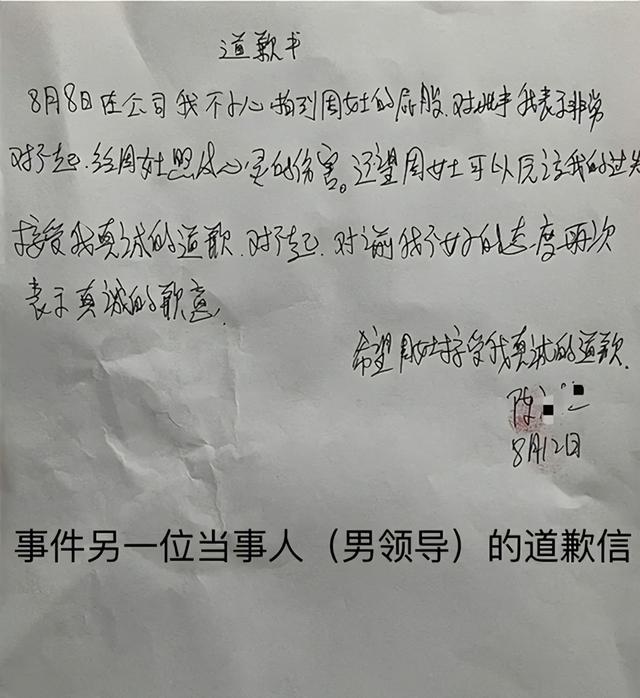 道歉书
8月8日在公司我不小心拍到周女士的屁股.对此事我表示非常
对不起.给周女士照成心灵的伤害。还望周女士可以原谅我的过失
接受我真诚的道歉.对不起.对之前我不好的态度再次
表示真诚的歉意.
希望周女士接受我真诚的道歉.
陈
8月12日
事件另一位当事人（男领导）的道歉信